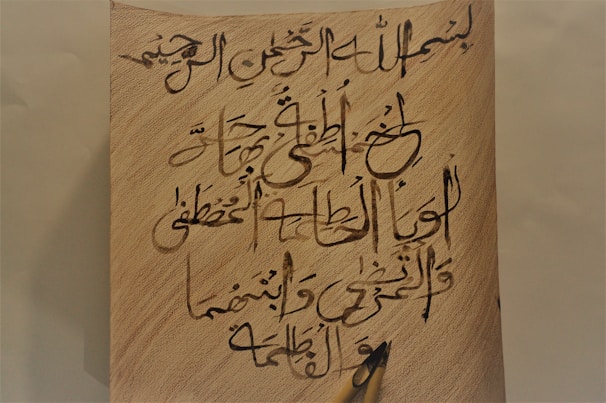 بِسْمِ اللهِ الرَّحْمٰنِ الرَّحِيمِ
لِي خَمْسَةٌ أُطْفِي بِهَا حَرَّ
الْوَبَاء الْحَاطِمَة الْمُصْطَفٰى
وَالْمُرْتَضٰى وَابْنٰهُمَا
وَالْفَاطِمَة